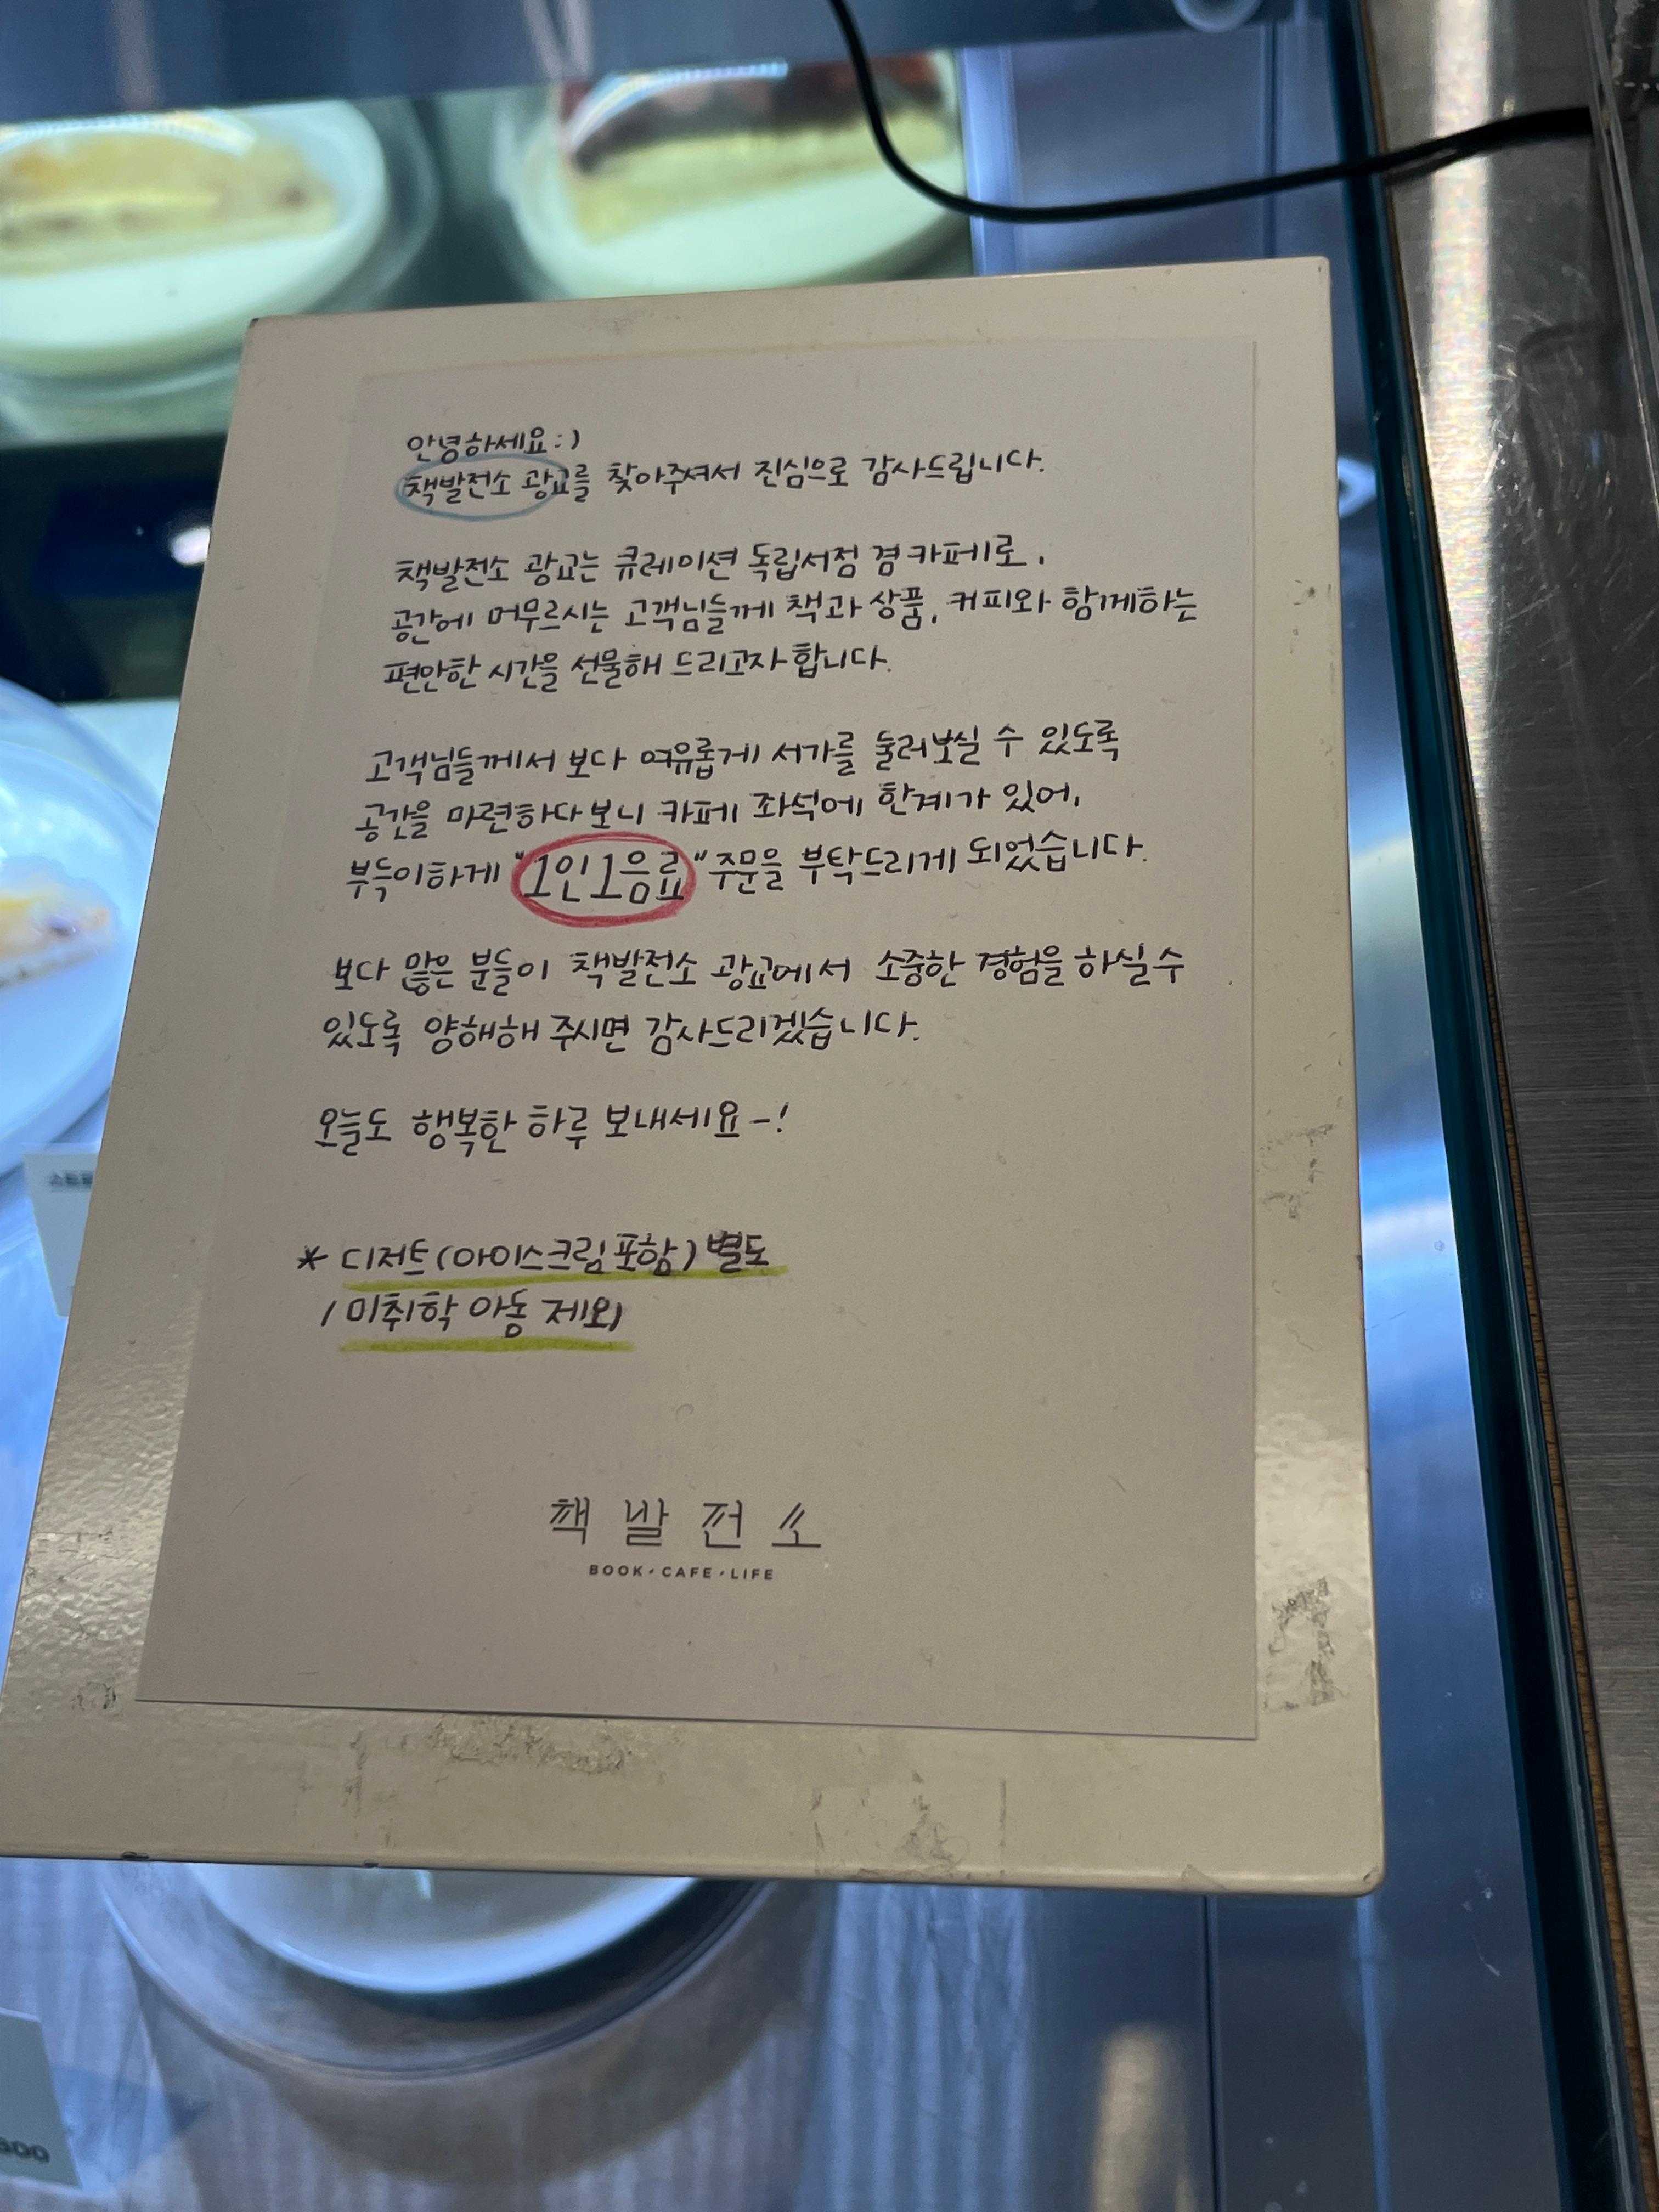 안녕하세요:)
책발전소 광교를 찾아주셔서 진심으로 감사드립니다.
책발전소 광교는 큐레이션 독립서점 겸 카페로,
공간에 머무르시는 고객님들께 책과 상품, 커피와 함께하는
편안한 시간을 선물해 드리고자 합니다.
고객님들께서 보다 여유롭게 서가를 둘러보실 수 있도록
공간을 마련하다 보니 카페 좌석에 한계가 있어,
부득이하게 "1인 1음료" 주문을 부탁드리게 되었습니다.
보다 많은 분들이 책발전소 광교에서 소중한 경험을 하실 수
있도록 양해해 주시면 감사드리겠습니다.
오늘도 행복한 하루 보내세요-!
* 디저트(아이스크림 포함) 별도
/ 미취학 아동 제외
책발전소
BOOK·CAFE·LIFE